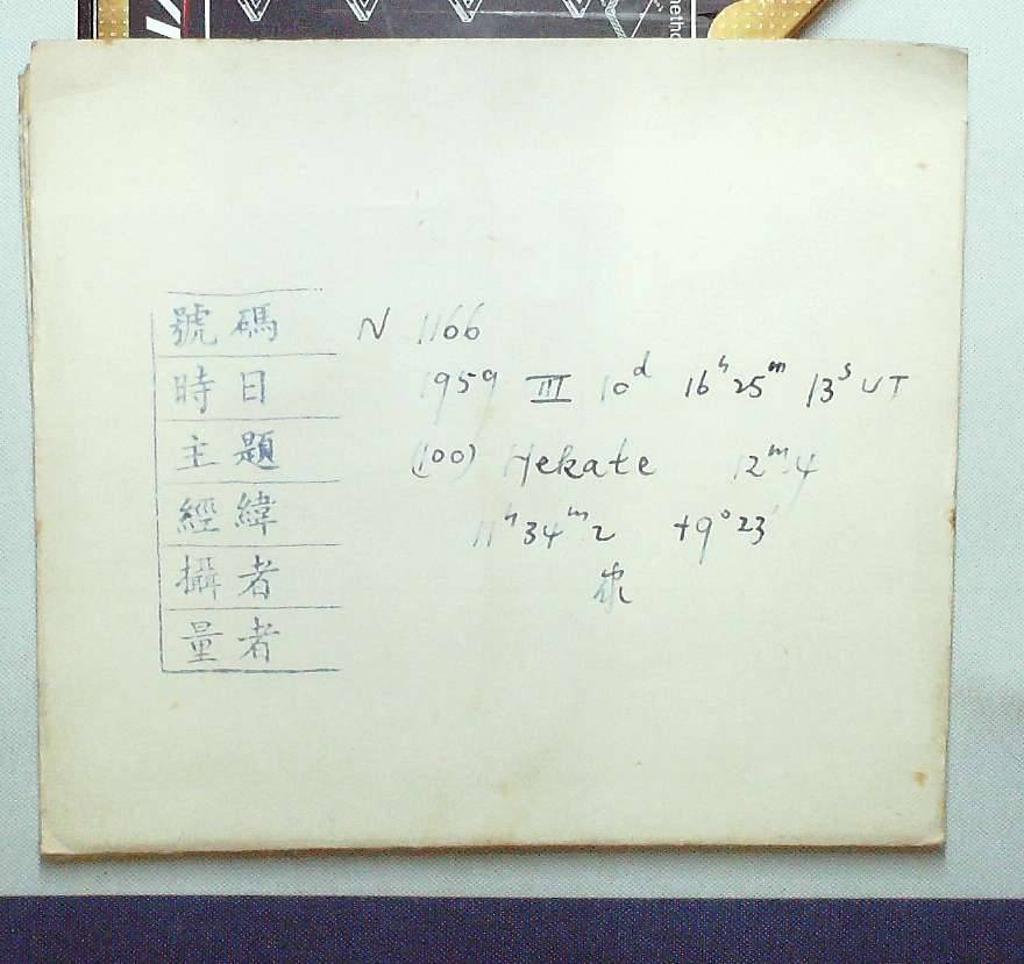 metho
號碼 N 1166
時日 1959 III 10ᵈ 16ʰ25ᵐ 13ˢ UT
主題 (100) Hekate 12ᵐ.4
經緯 11ʰ34ᵐ2 +9°23'
攝者
量者